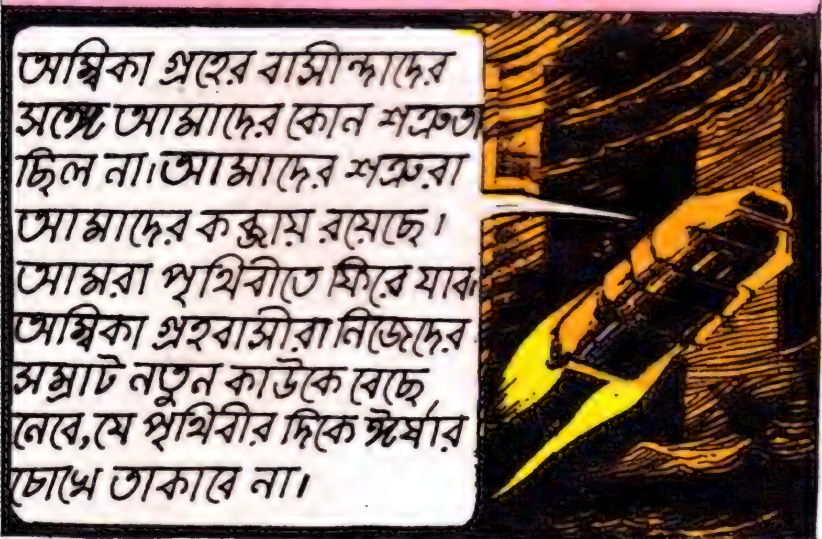 অম্বিকা গ্রহের বাসীন্দাদের
সঙ্গে আমাদের কোন শত্রুতা
ছিল না। আমাদের শত্রুরা
আমাদের কব্জায় রয়েছে।
আমরা পৃথিবীতে ফিরে যাব।
অম্বিকা গ্রহবাসীরা নিজেদের
সম্রাট নতুন কাউকে বেছে
নেবে, যে পৃথিবীর দিকে ঈর্ষার
চোখে তাকাবে না।